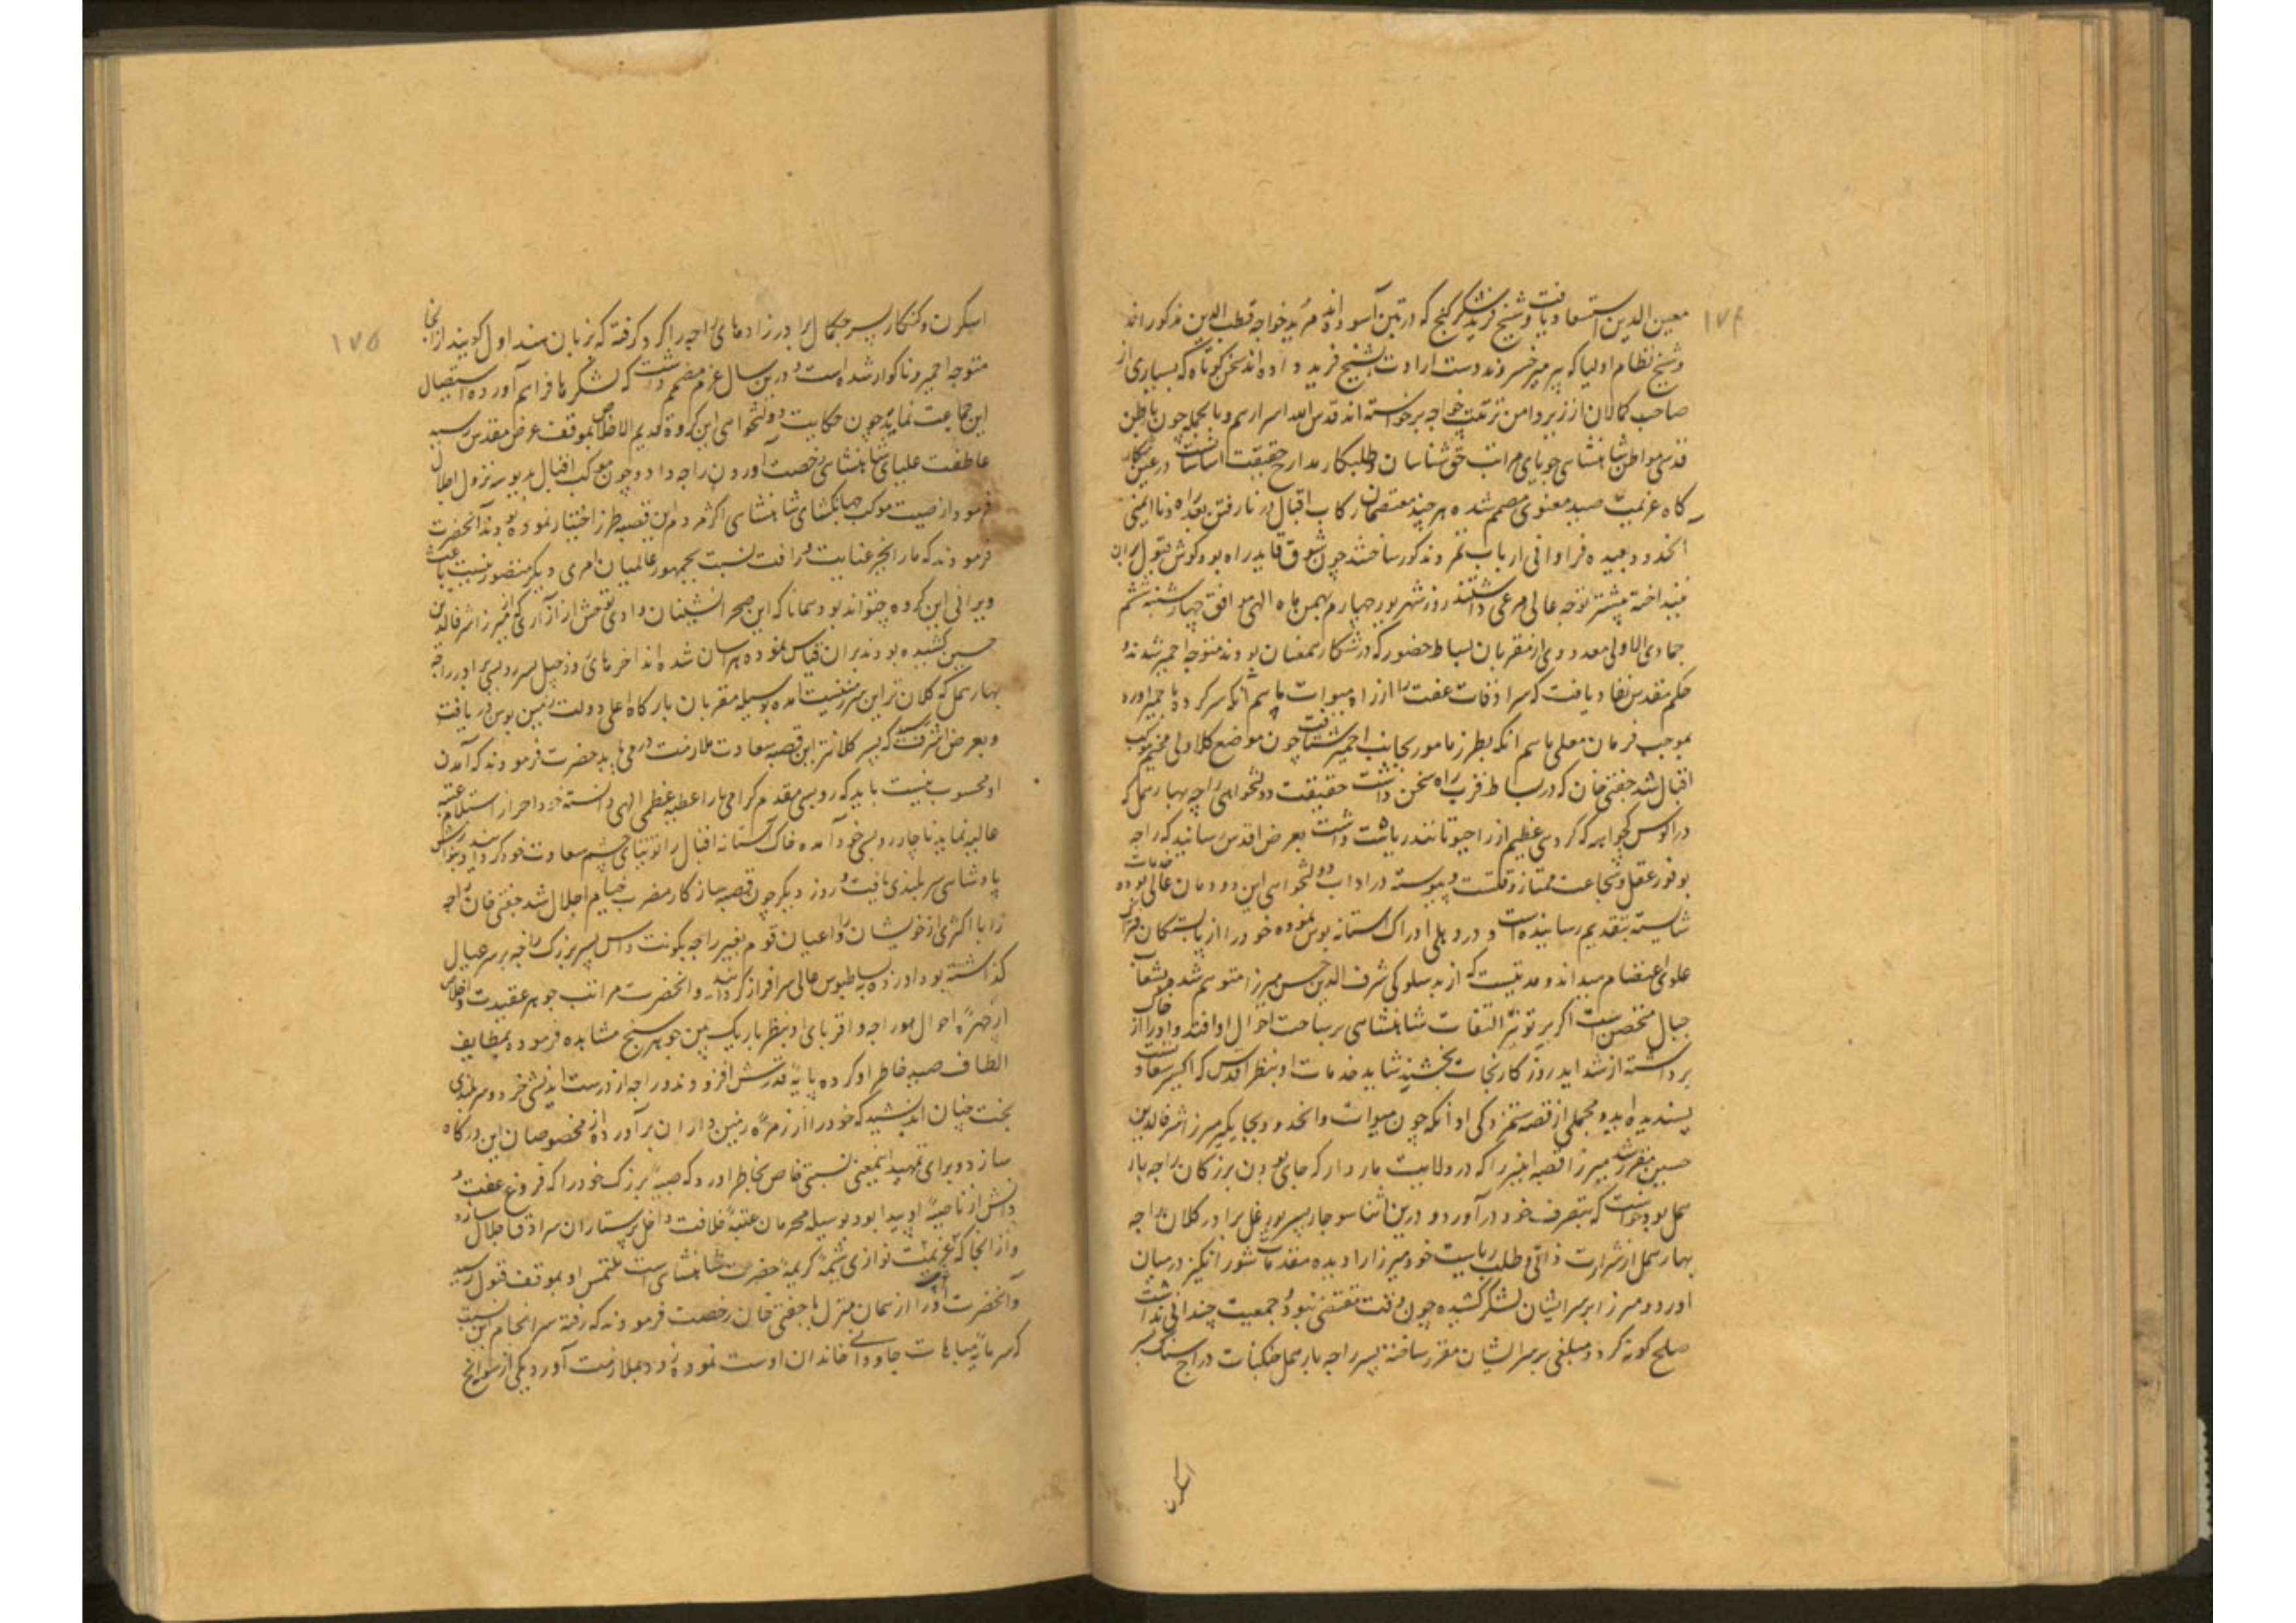 ۱۷۴
معین الدین استسعاد یافت و شیخ فرید شکر گنج که در پتن آسوده‌اند مرید خواجه قطب الدین مذکوراند
و شیخ نظام اولیا که پیر میر خسروند دست ارادت بشیخ فرید داده‌اند سخن کوتاه که بسیاری از
صاحب کمالان از زیر دامن تربیت خواجه برخواسته‌اند قدس الله اسرارهم و بالجمله چون باطن
قدسی مواطن شاهنشاهی جویای مراتب حق شناسان و طلبکار مدارج حقیقت اساسانست در عین شکار
گاه عزیمت صید معنوی مصمم شده هر چند معتصمان رکاب اقبال در نارفتن بعد راه و ناایمنی
آنحدود و عبیده فراوانی ارباب تمرد مذکور ساختند چون شوق قاید راه بود گوش قبول بران
نینداخته پیشتر توجه عالی مرعی داشتند روز شهریور چهارم بهمن ماه الهی موافق چهارشنبه ششم
جمادی الاولی معدودی از مقربان بساط حضور که در شکار سمغنان بودند متوجه اجمیر شدند و
حکم مقدس نفاد یافت که سرادقات عفت را از راه میوات ماهم انکه سر کرده باجمیر اورد
بموجب فرمان معلی ماهم انکه بطرز مامور بجانب اجمیر شتافت چون موضع کلاولی مخیم موکب
اقبال شد چغتی خان که در بساط قرب راه سخن داشت حقیقت دولتخواهی راجه بهارمل که
در الوس کچواهه که گروهی عظیم از راجپوتانند ریاست داشت بعرض اقدس رسانید که راجه
بوفور عقل و شجاعت ممتاز وقتست و پیوسته در اداب دولتخواهی این دودمان عالی بوده خدمات
شایسته بتقدیم رسانیده است و در دهلی ادراک استانه بوس نموده خود را از بستگان فتراک
علوی اعتضام میداند و مدتیست که از بدسلوکی شرف الدین حسین میرزا متوهم شده بشعاب
جبال متحصن است اگر پرتو نیر التفات شاهنشاهی بر ساحت احوال او افتد و او را از خاک
برداشته از شداید روزگار نجات بخشند شاید خدمات او بنظر اقدس که اکسیر سعادتست
پسندیده اید و مجملی از قصه ستمزدگی او آنکه چون میوات و انحدود بجایگیر میرزا شرف الدین
حسین مقرر شد میرزا قصبه انبیر را که در ولایت ماروار که جای بودن بزرگان راجه بهار
مل بود خواست که بتصرف خود درآورد و درین اثنا سوجا پسر پورنمل برادر کلان راجه
بهارمل از شرارت ذاتی و طلب ریاست خود میرزا را دیده مقدمات شورانگیز درمیان
اورد و میرزا بر سر ایشان لشکر کشیده چون وقت مقتضی نبود و جمعیت چندانی نداشت
صلح گونه کرد و مبلغی بر سر ایشان مقرر ساخته پسر راجه بهارمل جگنات و راج سنگ پسر
اسکرن
۱۷۵
اسکرن و کنکار پسر جگمال برادرزادهای راجه را گرو گرفته که بزبان هند اول گویند ازانجا
متوجه اجمیر و ناگور شده است و درین سال عزم مصمم داشت که لشکرها فراهم آورده استیصال
این جماعت نماید چون حکایت دولتخواهی این گروه قدیم الاخلاص بموقف عرض مقدس رسید
عاطفت علیای شاهنشاهی رخصت آوردن راجه داد و چون موکب اقبال بدیوسه نزول اجلال
فرمود از صیت موکب جهانگشای شاهنشاهی اکثر مردم این قصبه طرز اختیار نموده بودند آنحضرت
فرمودند که ما را بجز عنایت و رافت نسبت بجمهور عالمیان امری دیگر متصور نیست باعث
ویرانی این گروه چتواند بود همانا که این صحرا نشینان وادی توحش از آزاری که از میرزا شرف الدین
حسین کشیده بودند بران قیاس نموده هراسان شده‌اند اخرهای روز جیمل پسر روپسی برادر راجه
بهارمل که کلان تر این سرزمینست امده بوسیله مقربان بارگاه اعلی دولت زمین بوس دریافت
و بعرض اشرف رسید که پسر کلانتر این قصبه سعادت ملازمت درمی‌یابد حضرت فرمودند که آمدن
او محسوب نیست باید که روپسی مقدم گرامی ما را عطیه عظمی الهی دانسته خود احراز استلام عتبه
عالیه نماید ناچار روپسی خود آمده خاک آستانه اقبال را توتیای چشم سعادت خود گردانید و بنوازش
پادشاهی سربلندی یافت و روز دیگر چون قصبه سانکار مضرب خیام اجلال شد چغتی خان راجه
را با اکثری از خویشان و اعیان قوم بغیر راجه بگونت داس پسر بزرگ راجه بر سر عیال
گذاشته بود اورده به بساطبوس عالی سرافراز گردانید و انحضرت مراتب جوهر عقیدت و اخلاص
از چهرهٔ احوال مور راجه و اقربای او بنظر باریک بین جوهر سنج مشاهده فرموده بلطایف
الطاف صید خاطر او کرده پایهٔ قدرش افزودند و راجه از درست اندیشی خرد و سربلندی
بخت چنان اندیشید که خود را از زمرهٔ زمین داران برآورده از مخصوصان این درگاه
سازد و برای تمهید اینمعنی نسبتی خاص بخاطر اورد که صبیهٔ بزرگ خود را که فروغ عفت و
دانش از ناصیهٔ او پیدا بود بوسیله محرمان عتبهٔ خلافت داخل پرستاران سرادق اجلال سازد
و از انجا که غریب نوازی شیمهٔ کریمهٔ حضرت شاهنشاهی است ملتمس او بموقف قبول رسید
و انحضرت او را از همان منزل با چغتی خان رخصت فرمودند که رفته سرانجام این نسبت
که سرمایهٔ مباهات جاودانی خاندان اوست نموده زود بملازمت آورد و یکی از سوانح